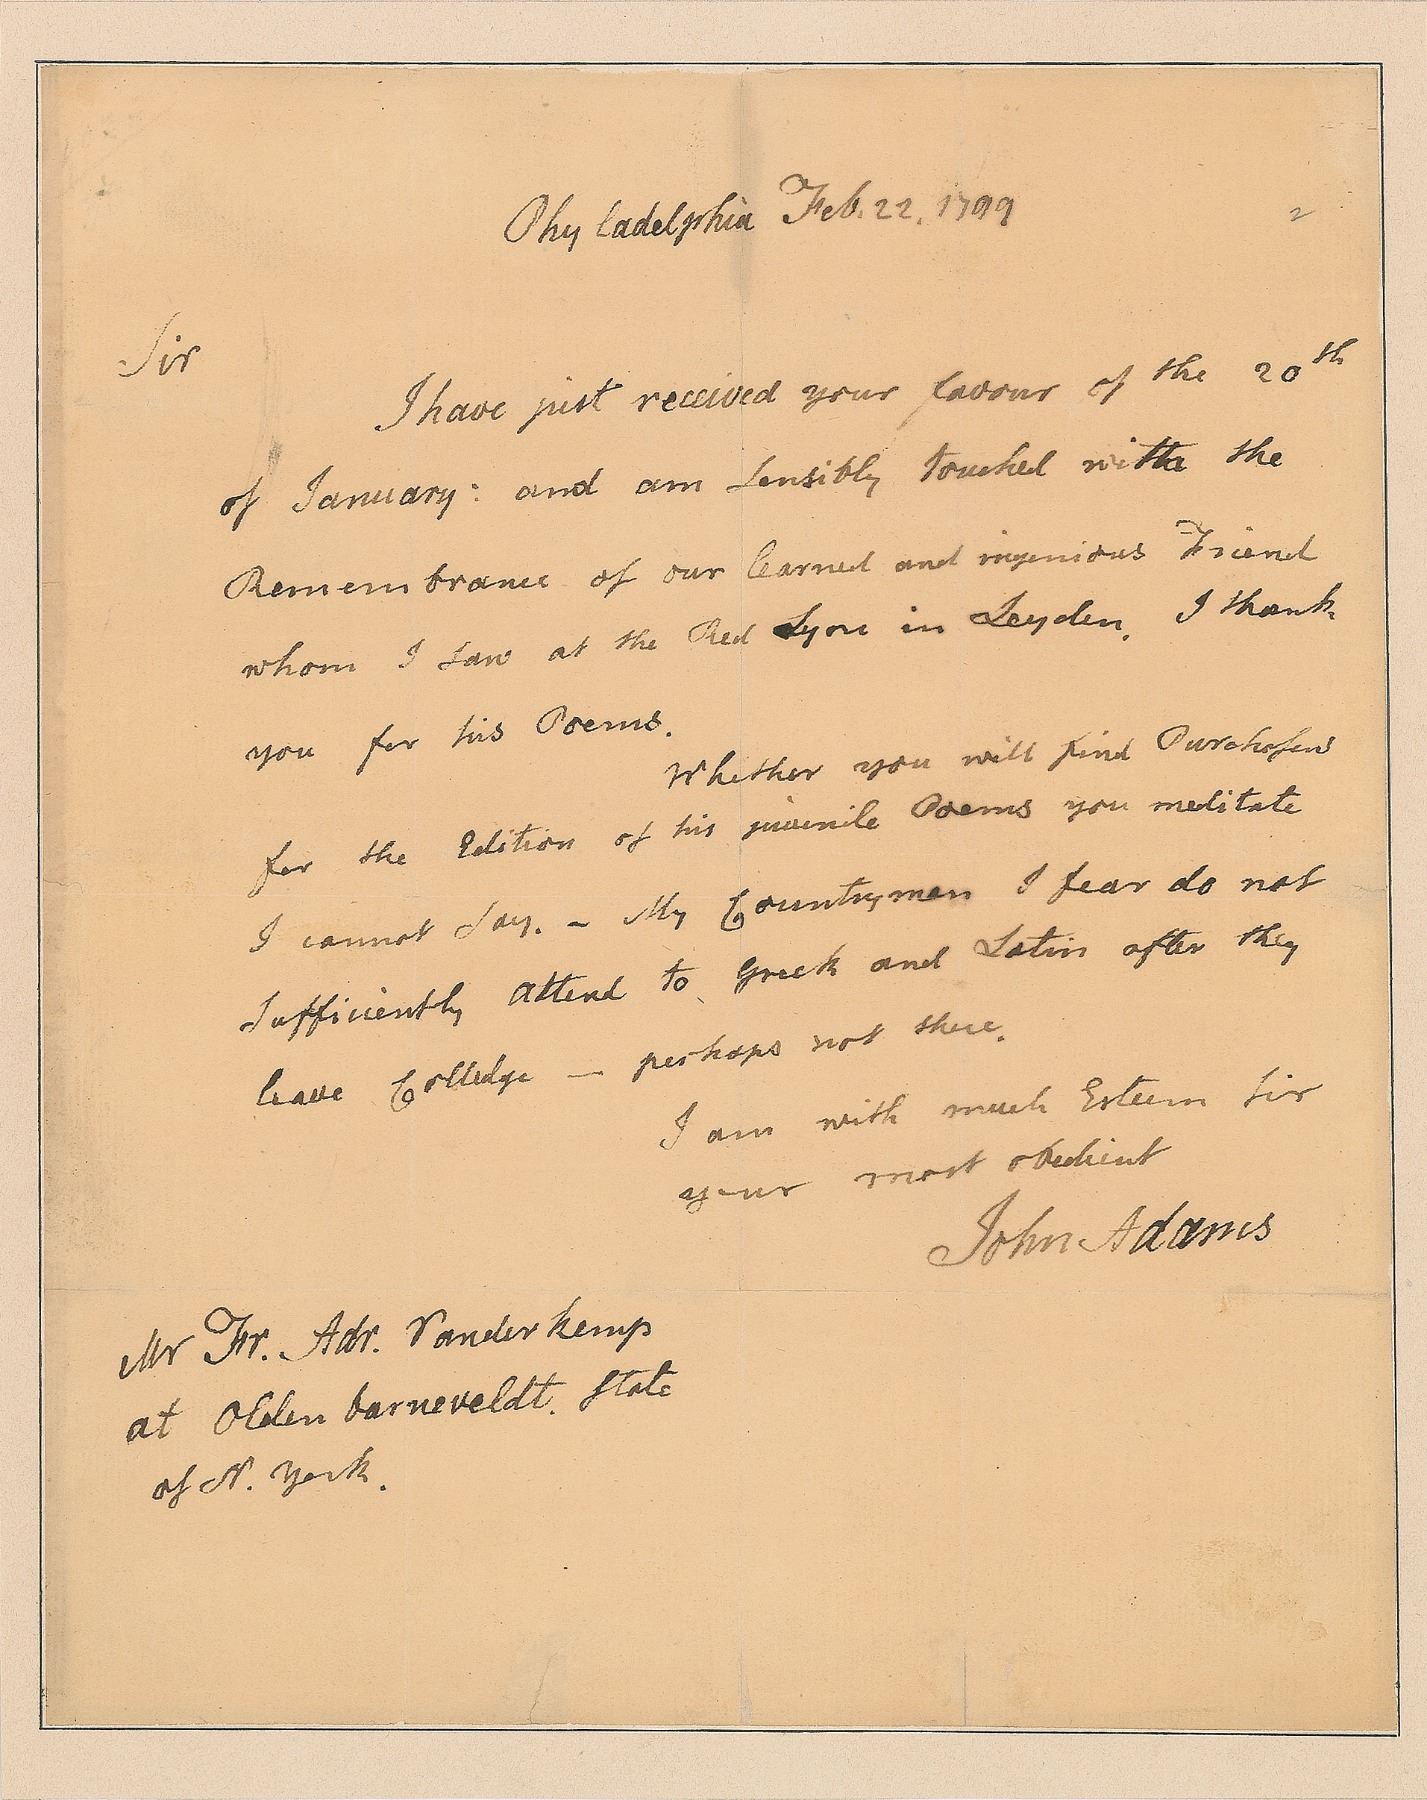 Phyladelphia Feb. 22. 1799
2
Sir
I have just received your favour of the 20th
of January: and am sensibly touched with the
Remembrance of our learned and ingenious Friend
whom I saw at the Red Lyon in Leyden. I thank
you for his Poems.
Whether you will find Purchasers
for the Edition of his juvenile Poems you meditate
I cannot say. – My Countrymen I fear do not
sufficiently attend to Greek and Latin after they
leave Colledge — perhaps not there.
I am with much Esteem Sir
your most obedient
John Adams
Mr Fr. Adr. Vanderkemp
at Olden barneveldt. State
of N. York.